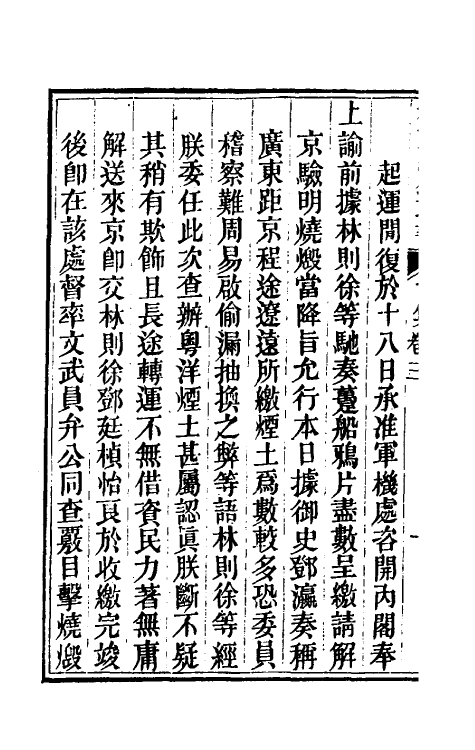 卷三
起運間復於十八日承准軍機處咨開內閣奉
上諭前據林則徐等馳奏躉船鴉片盡數呈繳請解
京驗明燒燬當降旨允行本日據御史鄧瀛奏稱
廣東距京程途遼遠所繳煙土爲數較多恐委員
稽察難周易啟偷漏抽換之弊等語林則徐等經
朕委任此次查辦粵洋煙土甚屬認眞朕斷不疑
其稍有欺飾且長途轉運不無借資民力著無庸
解送來京卽交林則徐鄧廷楨怡良於收繳完竣
後卽在該處督率文武員弁公同查覈目擊燒燬